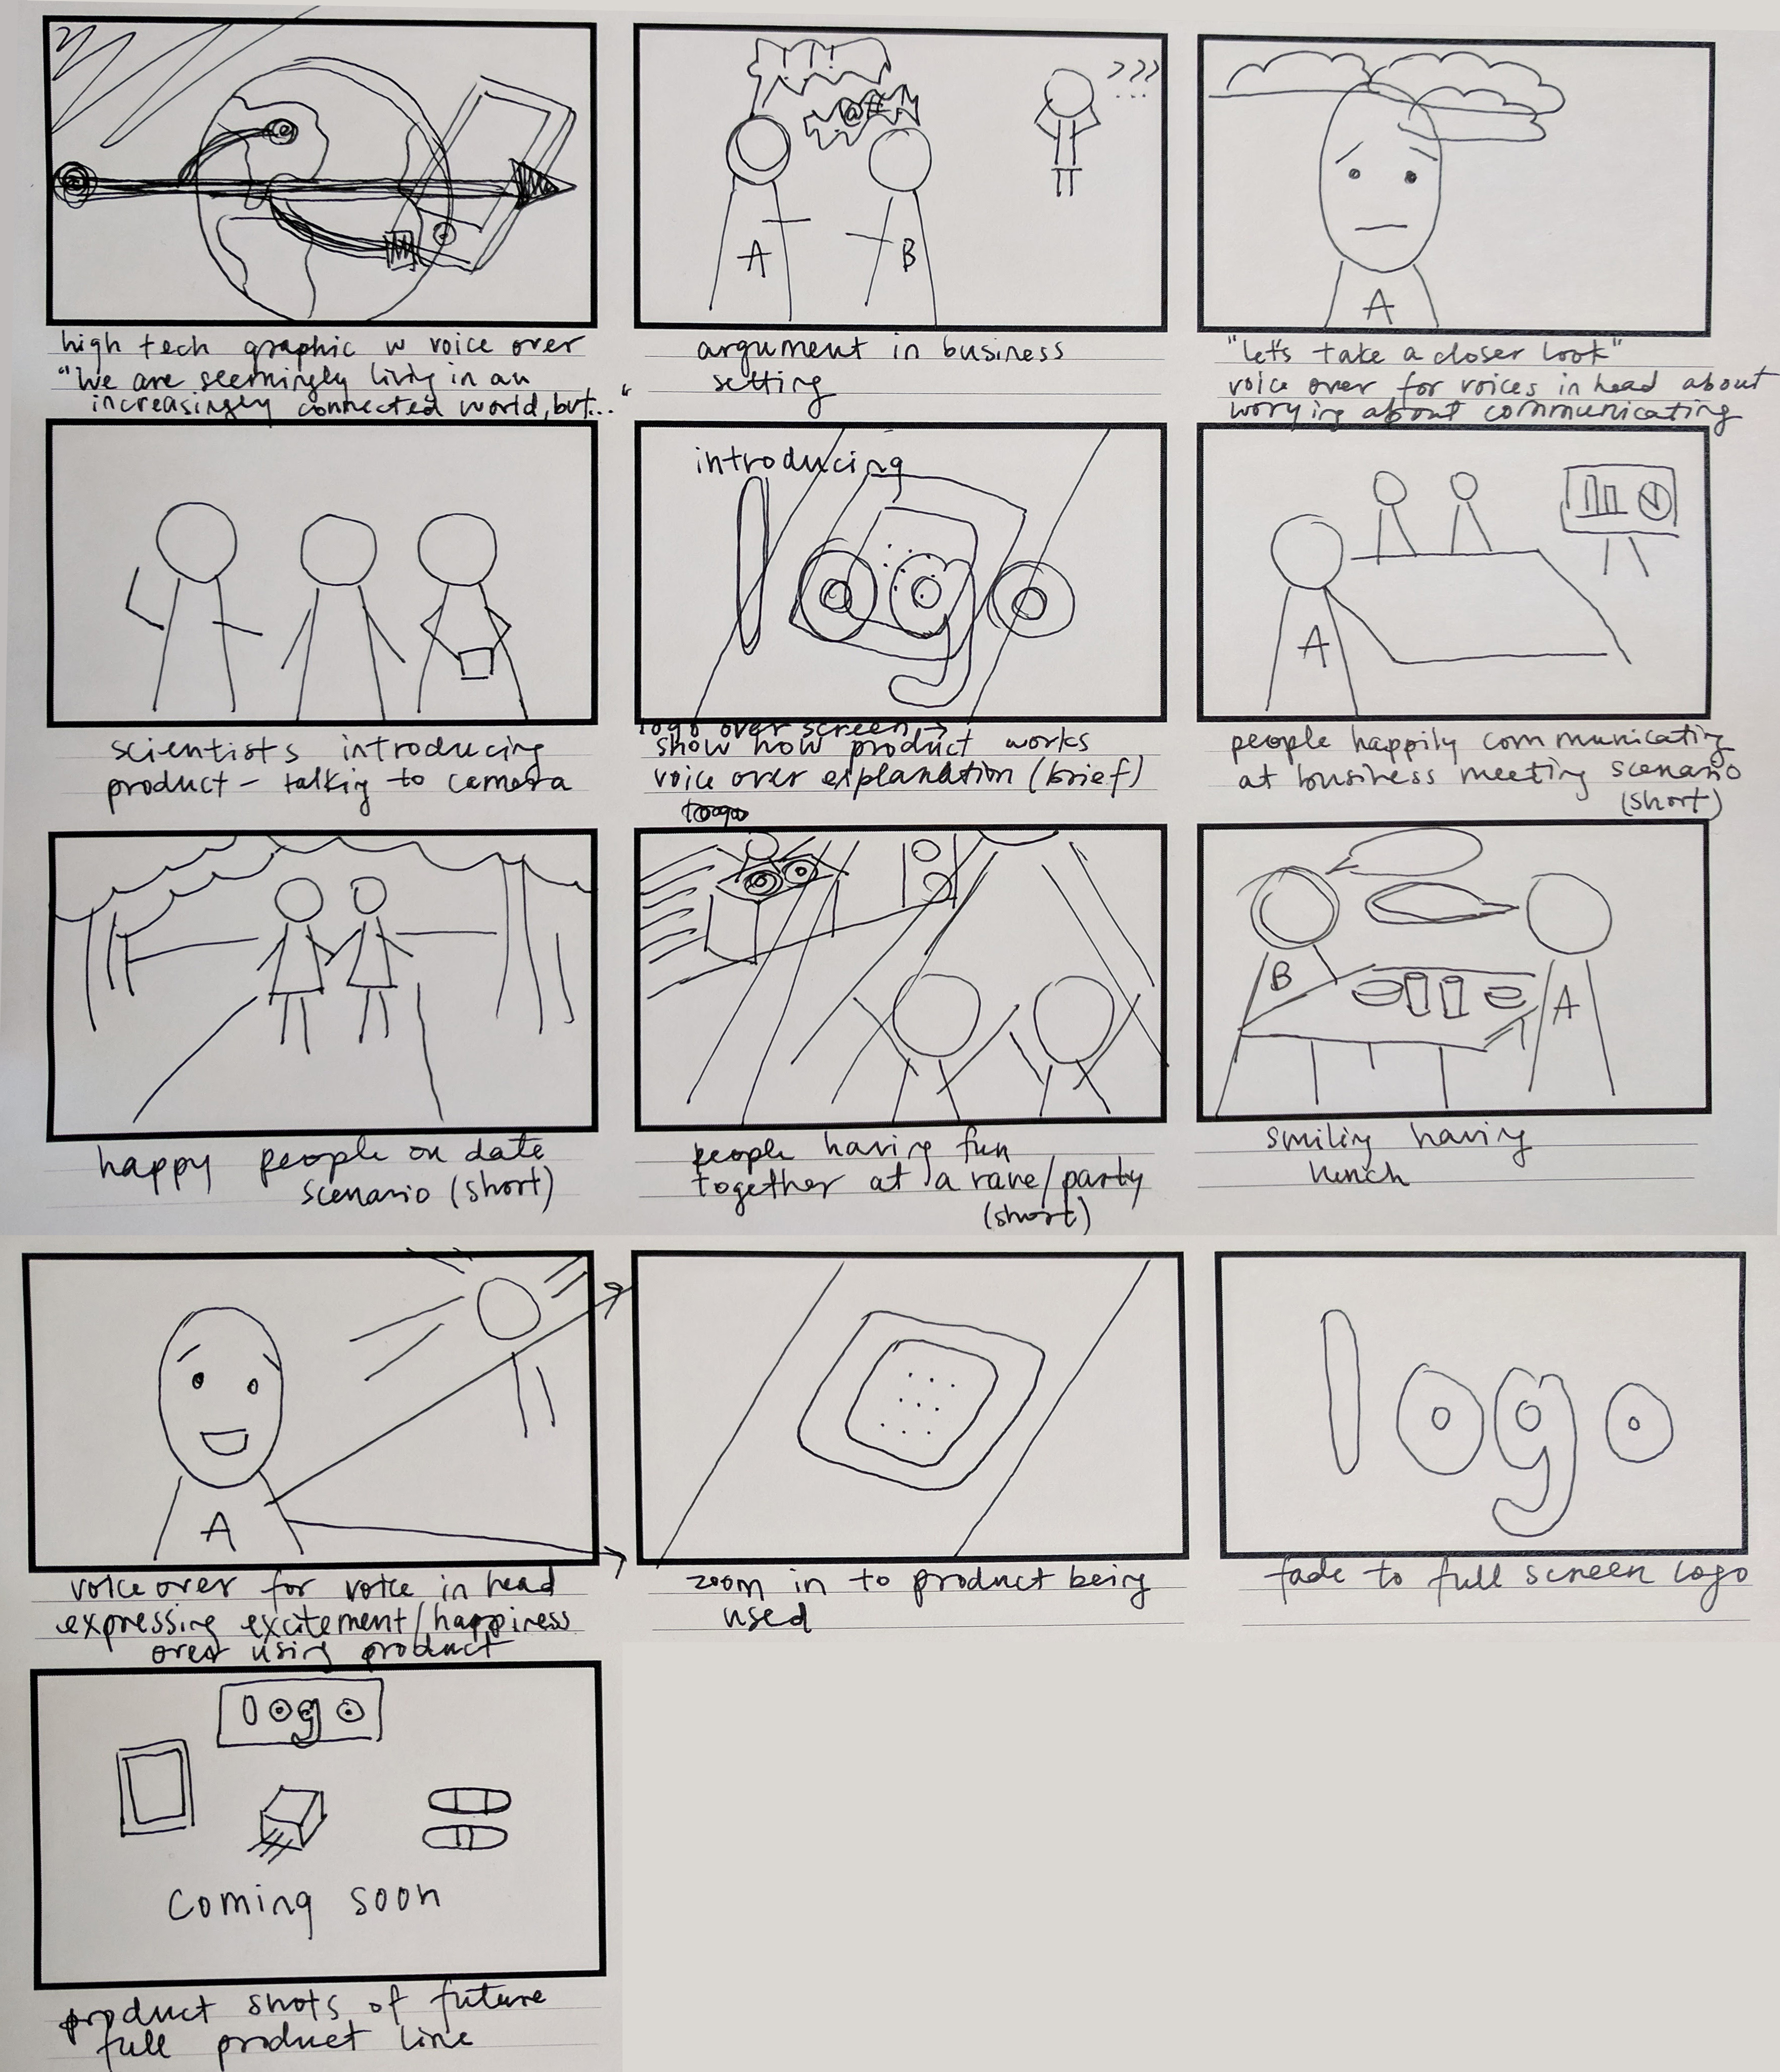 high tech graphic w voice over
"We are seemingly living in an
increasingly connected world, but..."
!!!
@#
A
B
???
...
argument in business
setting
A
"let's take a closer look"
voice over for voices in head about
worrying about communicating
scientists introducing
product - talking to camera
introducing
logo
logo over screen →
show how product works
voice over explanation (brief)
A
people happily communicating
at business meeting scenario
(short)
happy people on date
scenario (short)
people having fun
together at a rave/party
(short)
B
A
smiling having
lunch
A
voice over for voice in head
expressing excitement/happiness
over using product
zoom in to product being
used
logo
fade to full screen logo
logo
coming soon
product shots of future
full product line